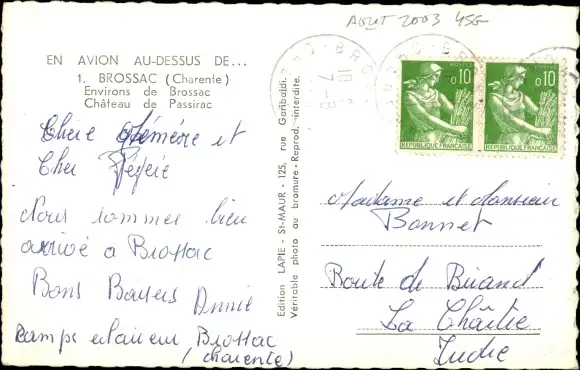 AOUT 2003 45G
EN AVION AU-DESSUS DE...
1. BROSSAC (Charente)
Environs de Brossac
Château de Passirac
Chere Mémére et
Cher Pépére
Nous sommes bien
arrivé a Brossac
Bons Baisers Annie
Camps Brossac
(charente)
Edition LAPIE - St-MAUR - 125, rue Garibaldi.
Véritable photo au bromure - Reprod. interdite.
POSTES
0,10
REPUBLIQUE FRANÇAISE
POSTES
0,10
REPUBLIQUE FRANÇAISE
Madame et Monsieur
Bonnet
Route de Briand
La Châtre
Indre